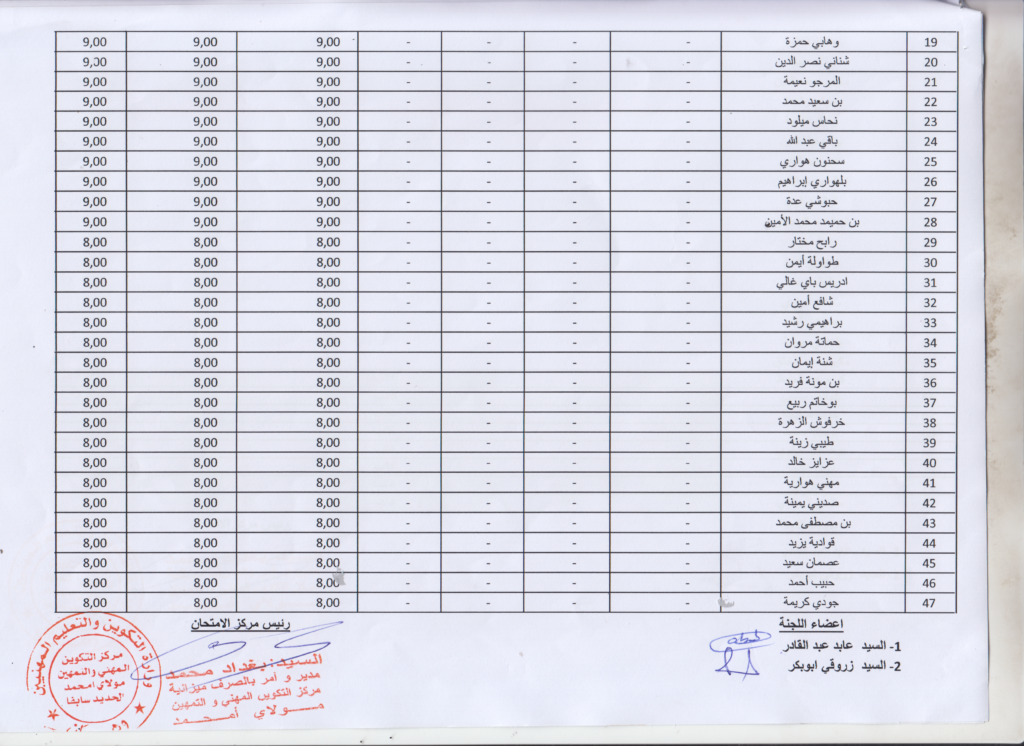 19 وهابي حمزة - - - - 9,00 9,00 9,00
20 شناني نصر الدين - - - - 9,00 9,00 9,00
21 المرجو نعيمة - - - - 9,00 9,00 9,00
22 بن سعيد محمد - - - - 9,00 9,00 9,00
23 نحاس ميلود - - - - 9,00 9,00 9,00
24 باقي عبد الله - - - - 9,00 9,00 9,00
25 سحنون هواري - - - - 9,00 9,00 9,00
26 بلهواري إبراهيم - - - - 9,00 9,00 9,00
27 حبوشي عدة - - - - 9,00 9,00 9,00
28 بن حميمد محمد الأمين - - - - 9,00 9,00 9,00
29 رابح مختار - - - - 8,00 8,00 8,00
30 طواولة أيمن - - - - 8,00 8,00 8,00
31 ادريس باي غالي - - - - 8,00 8,00 8,00
32 شافع أمين - - - - 8,00 8,00 8,00
33 براهيمي رشيد - - - - 8,00 8,00 8,00
34 حماتة مروان - - - - 8,00 8,00 8,00
35 شنة إيمان - - - - 8,00 8,00 8,00
36 بن مونة فريد - - - - 8,00 8,00 8,00
37 بوخاتم ربيع - - - - 8,00 8,00 8,00
38 خرفوش الزهرة - - - - 8,00 8,00 8,00
39 طيبي زينة - - - - 8,00 8,00 8,00
40 عزايز خالد - - - - 8,00 8,00 8,00
41 مهني هوارية - - - - 8,00 8,00 8,00
42 صديني يمينة - - - - 8,00 8,00 8,00
43 بن مصطفى محمد - - - - 8,00 8,00 8,00
44 قوادية يزيد - - - - 8,00 8,00 8,00
45 عصمان سعيد - - - - 8,00 8,00 8,00
46 حبيب أحمد - - - - 8,00 8,00 8,00
47 جودي كريمة - - - - 8,00 8,00 8,00
اعضاء اللجنة
1- السيد عابد عبد القادر
2- السيد زروقي ابوبكر
رئيس مركز الامتحان
السيد: بغداد محمد
مدير و أمر بالصرف ميزانية
مركز التكوين المهني و التمهين
مولاي أمحمد
وزارة التكوين والتعليم المهنيين
مركز التكوين
المهني والتمهين
مولاي امحمد
الحديد سابقا